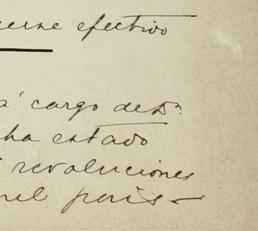 efectivo
á cargo de D.
ha estado
revoluciones
el pais —